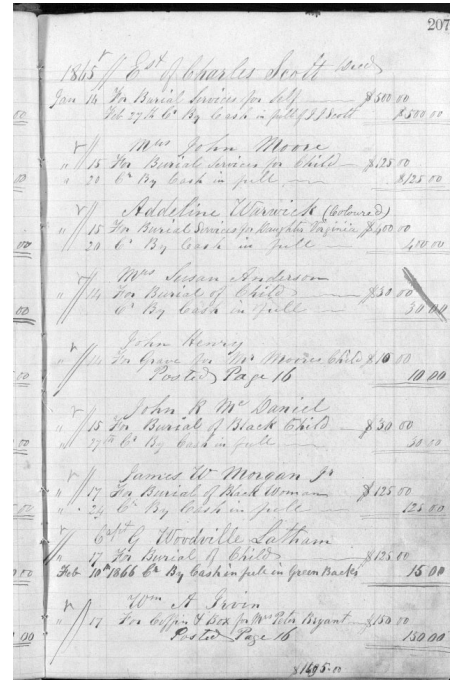 207
1865 // Est of Charles Scott Decd
Jan 14 For Burial Services for Self $500 00
Feb 27th Cr By Cash in full of J Scott $500 00
Mrs John Moore
" 15 For Burial Services for Child $125 00
" 20 Cr By Cash in full $125 00
Addeline Warwick (Coloured)
" 15 For Burial Services for Daughter Virginia $400 00
20 Cr By Cash in full 400 00
Mrs Susan Anderson
" 14 For Burial of Child $30 00
Cr By Cash in full 30 00
John Henry
" 14 For Grave for Mr Moores Child $10 00
Posted Page 16 10 00
John R Mc Daniel
" 15 For Burial of Black Child $30 00
" 27th Cr By Cash in full 30 00
James W Morgan Jr
" 17 For Burial of Black Woman $125 00
" 24 Cr By Cash in full 125 00
Capt G Woodville Latham
" 17 For Burial of Child $125 00
Feb 10th 1866 Cr By Cash in full in Green Backs 15 00
Wm A Irvin
" 17 For Coffin & Box for Mrs Peter Bryant $150 00
Posted Page 16 150 00
$1695.00